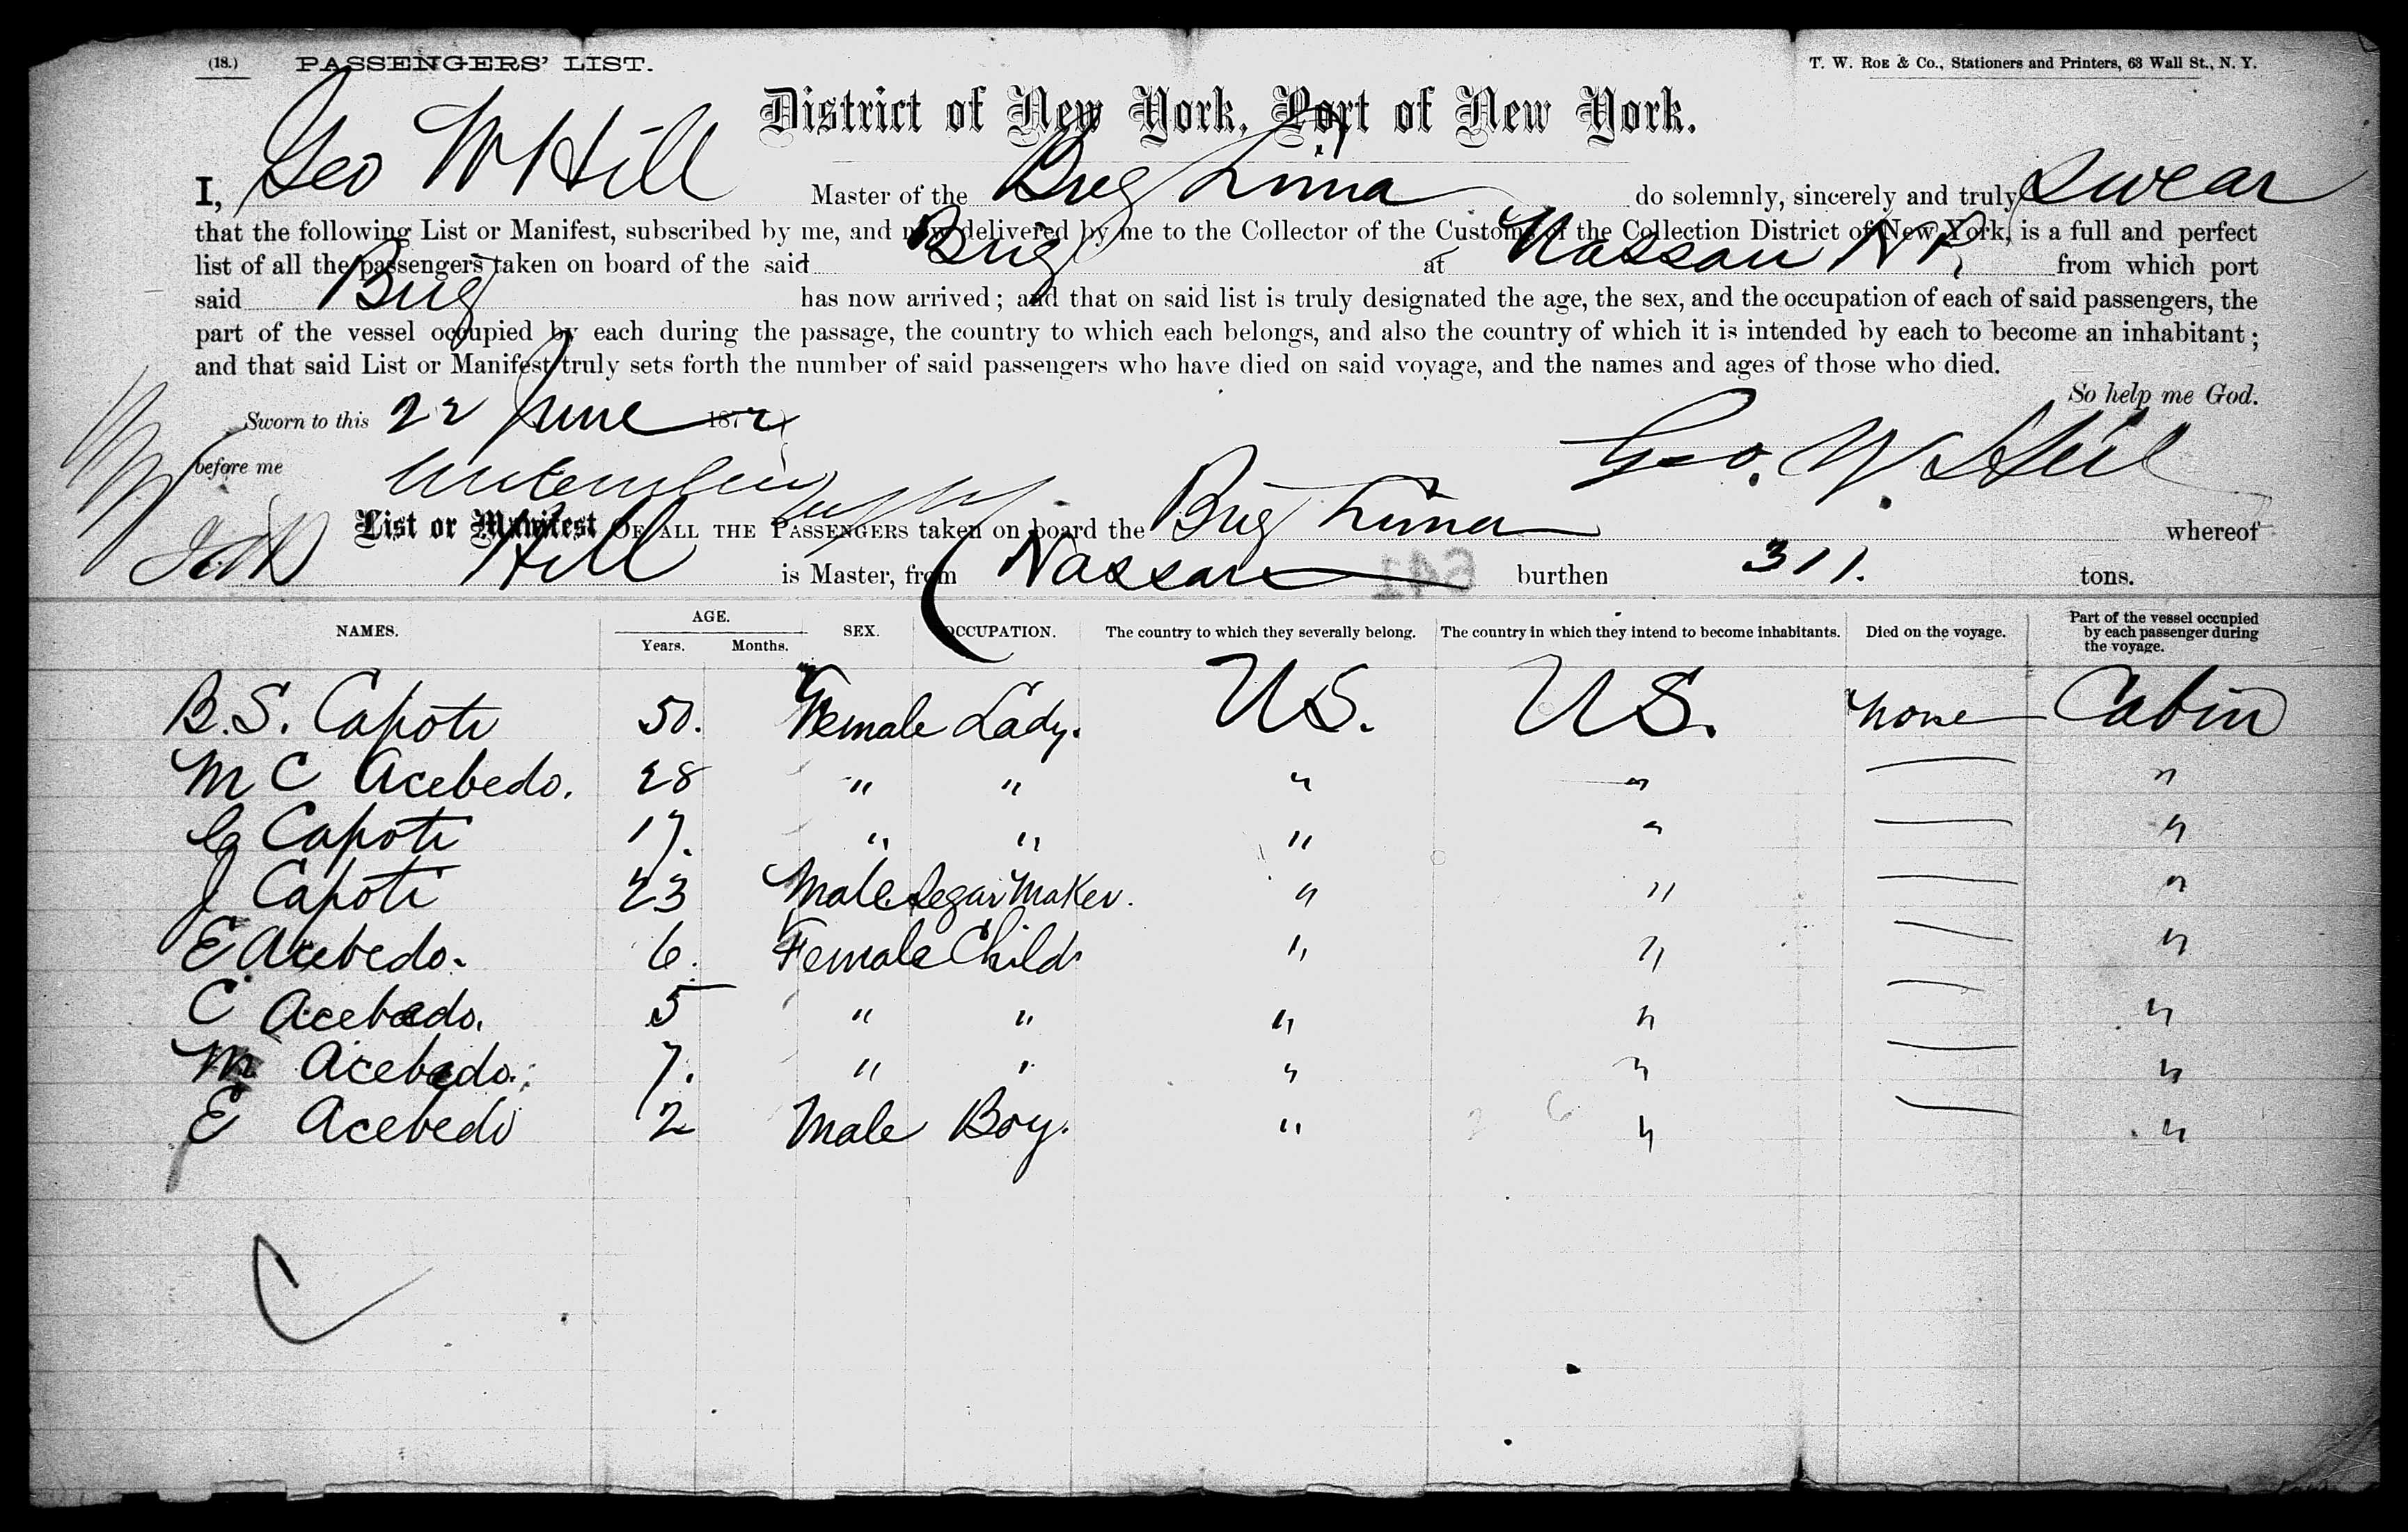 (18.) PASSENGERS' LIST. T. W. ROE & CO., Stationers and Printers, 63 Wall St., N. Y.
District of New York, Port of New York.
I, Geo W Hill Master of the Brig Lima do solemnly, sincerely and truly swear
that the following List or Manifest, subscribed by me, and now delivered by me to the Collector of the Customs of the Collection District of New York, is a full and perfect
list of all the passengers taken on board of the said Brig at Nassau N P. from which port
said Brig has now arrived; and that on said list is truly designated the age, the sex, and the occupation of each of said passengers, the
part of the vessel occupied by each during the passage, the country to which each belongs, and also the country of which it is intended by each to become an inhabitant;
and that said List or Manifest truly sets forth the number of said passengers who have died on said voyage, and the names and ages of those who died.
So help me God.
Sworn to this 22 June 187
before me Geo. W. Hill
List or Manifest OF ALL THE PASSENGERS taken on board the Brig Lima whereof
Hill is Master, from Nassau burthen 311. tons.
641
NAMES. AGE. Years. Months. SEX. OCCUPATION. The country to which they severally belong. The country in which they intend to become inhabitants. Died on the voyage. Part of the vessel occupied by each passenger during the voyage.
B. S. Capoti 50. Female Lady. US. US. None Cabin
M C Acebedo. 28 " " " " — "
C Capoti 17. " " " " — "
J Capoti 23 Male Segar Maker. " " — "
E Acebedo. 6. Female Child " " — "
C Acebedo. 5 " " " " — "
M Acebedo. 7. " " " " — "
E Acebedo 2 Male Boy. " " — "